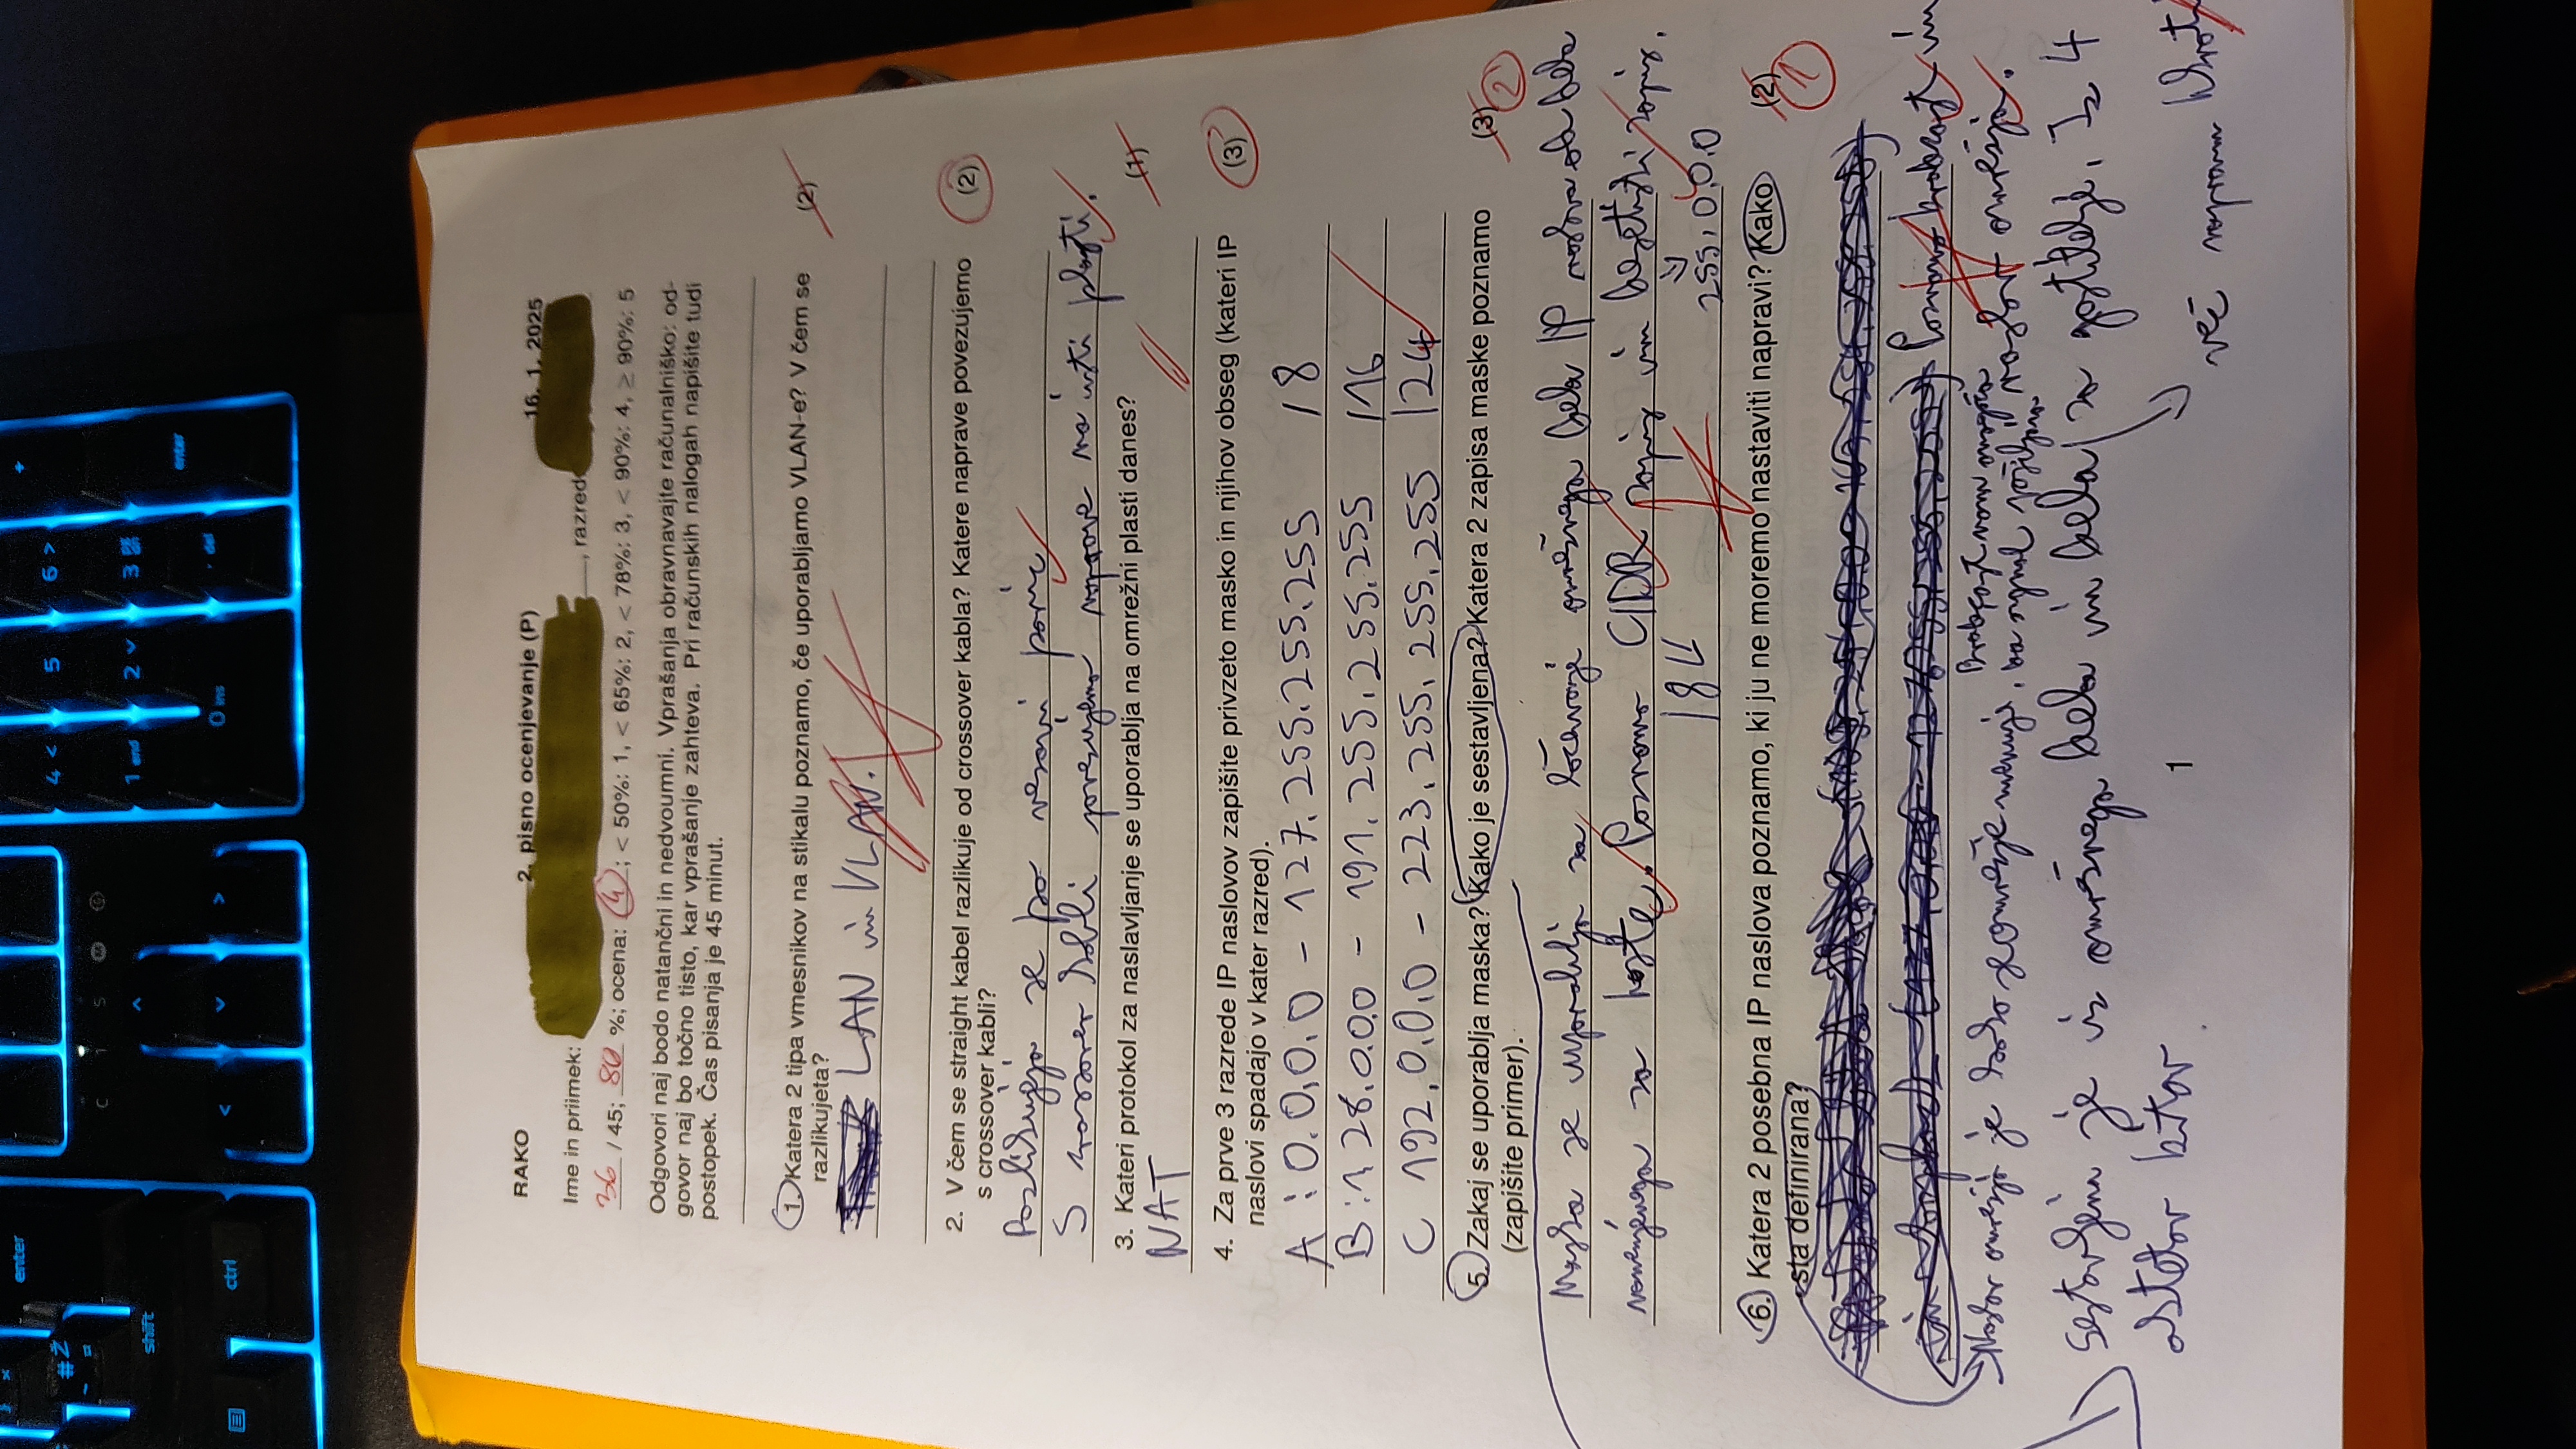 enter
#Ž
shift
ctrl
C 1 S
4 < 5 6 > +
1 end 2 3 enter
0 ins . del
RAKO 2. pisno ocenjevanje (P) 16. 1. 2025
Ime in priimek: , razred
36 / 45; 80 %; ocena: 4; < 50%: 1, < 65%: 2, < 78%: 3, < 90%: 4, ≥ 90%: 5
Odgovori naj bodo natančni in nedvoumni. Vprašanja obravnavajte računalniško: od-
govor naj bo točno tisto, kar vprašanje zahteva. Pri računskih nalogah napišite tudi
postopek. Čas pisanja je 45 minut.
1. Katera 2 tipa vmesnikov na stikalu poznamo, če uporabljamo VLAN-e? V čem se (2)
razlikujeta?
LAN in VLAN.
2. V čem se straight kabel razlikuje od crossover kabla? Katere naprave povezujemo (2)
s crossover kabli?
se po vezavi paric
S crossover kabli povezujemo naprave na isti plasti.
3. Kateri protokol za naslavljanje se uporablja na omrežni plasti danes? (1)
NAT
4. Za prve 3 razrede IP naslovov zapišite privzeto masko in njihov obseg (kateri IP (3)
naslovi spadajo v kater razred).
A : 0.0.0.0 - 127.255.255.255 /8
B : 128.0.0.0 - 191.255.255.255 /16
C 192.0.0.0 - 223.255.255.255 /24
5. Zakaj se uporablja maska? Kako je sestavljena? Katera 2 zapisa maske poznamo (3) 2
(zapišite primer).
Maska se uporablja za ločevanje omrežnega dela IP naslova od dela
namenjenega za hoste. Poznamo CIDR zapis in desetiški zapis.
/8 255.0.0.0
6. Katera 2 posebna IP naslova poznamo, ki ju ne moremo nastaviti napravi? Kako (2) 1
sta definirana?
Poznamo broadcast in
naslov omrežja.
Naslov omrežja je kako se omrežje imenuje. Broadcast nam omogoča
da signal pošiljamo
Sestavljena je iz omrežnega dela in dela za gostitelje. Iz 4
oktetov bitov.
več napravam hkrati
1